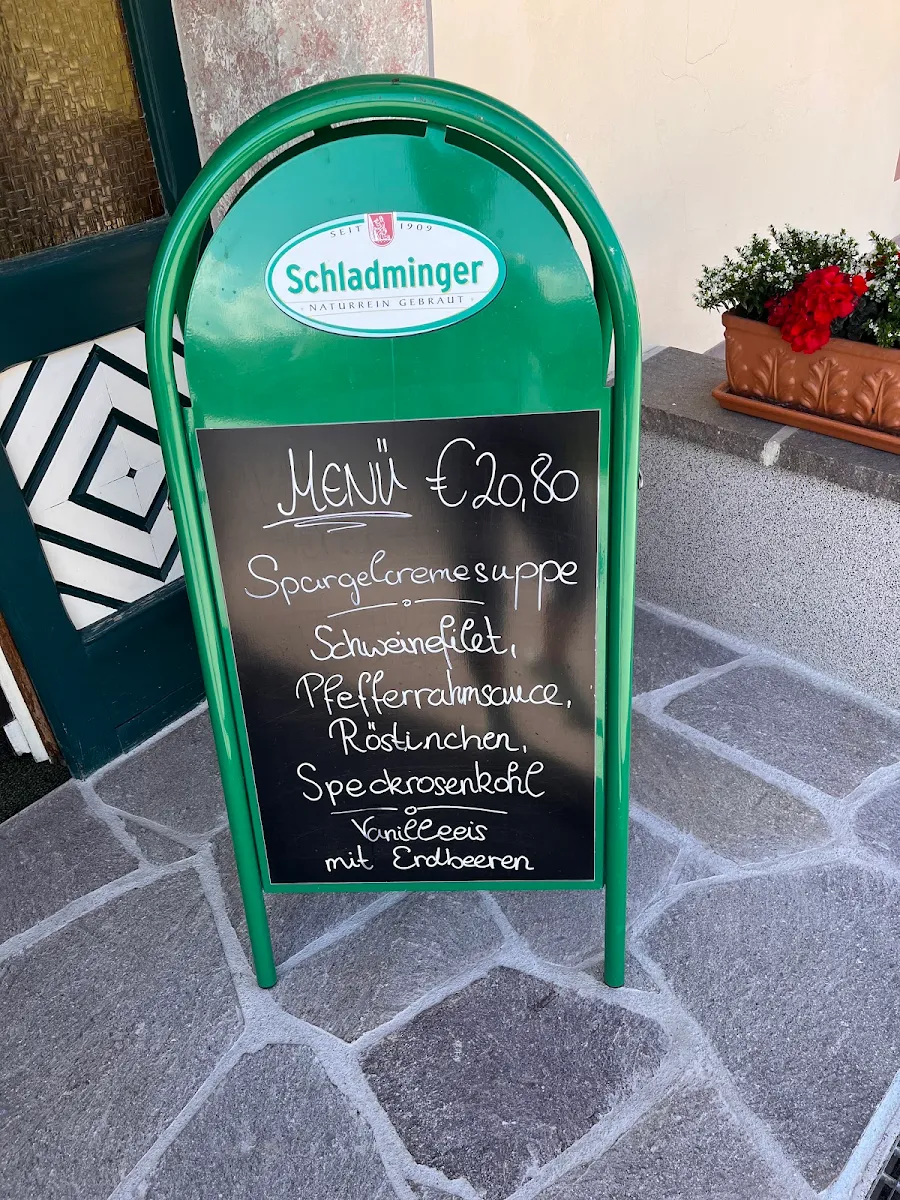 SEIT 1909
Schladminger
NATURREIN GEBRAUT
MENÜ €20,80
Spargelcremesuppe
Schweinefilet,
Pfefferrahmsauce,
Röstinchen,
Speckrosenkohl
Vanilleeis
mit Erdbeeren